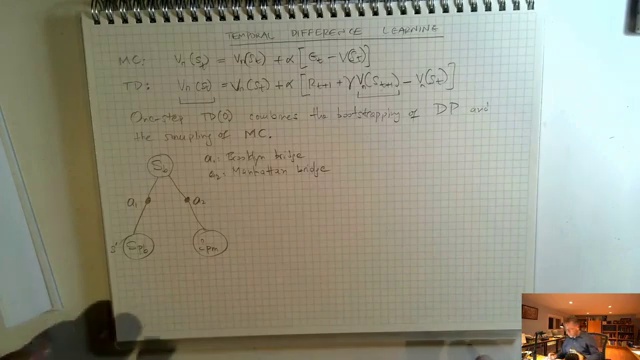 TEMPORAL DIFFERENCE LEARNING
MC: Vπ(St) = Vπ(St) + α [Gt − V(St)]
TD: Vπ(St) = Vπ(St) + α [Rt+1 + γVπ(St+1) − Vπ(St)]
One-step TD(0) combines the bootstrapping of DP and
the sampling of MC.
a1: Brooklyn bridge
a2: Manhattan bridge
a1
a2
s'